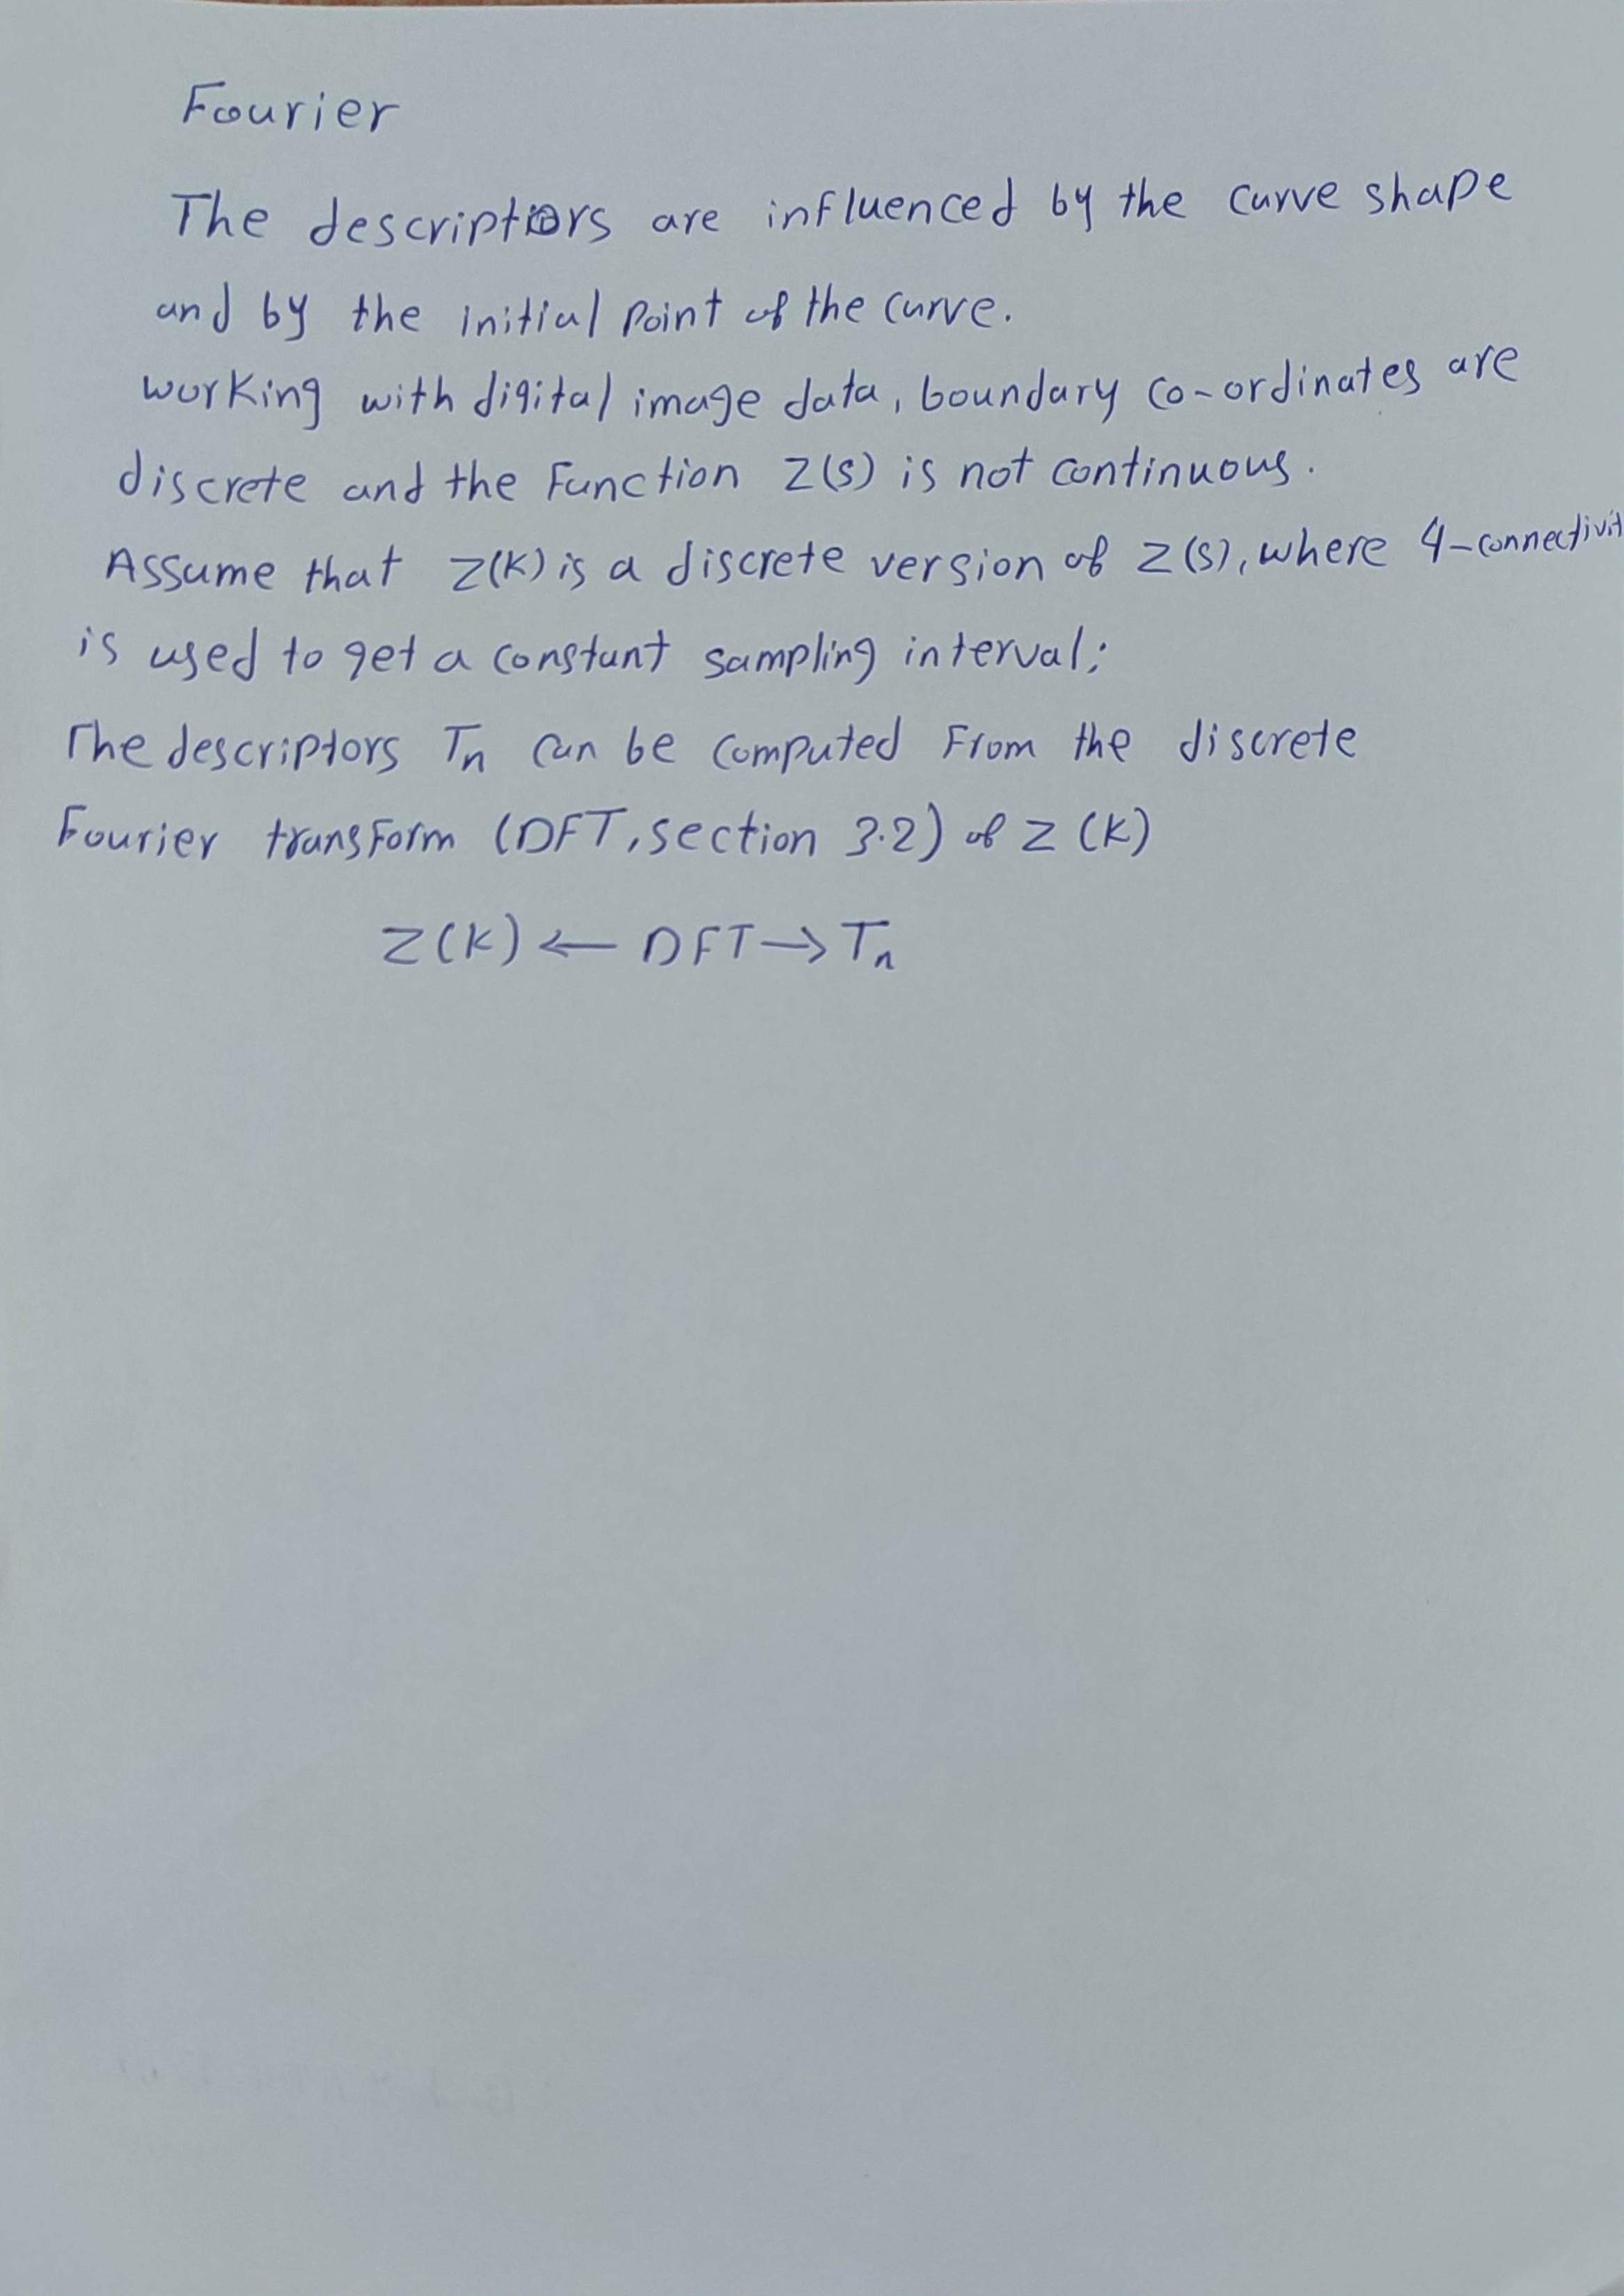 Fourier
The descriptors are influenced by the curve shape
and by the initial point of the curve.
working with digital image data, boundary co-ordinates are
discrete and the Function Z(s) is not continuous.
Assume that Z(K) is a discrete version of Z(s), where 4-connectivit
is used to get a constant sampling interval;
The descriptors Tn can be computed From the discrete
Fourier transform (DFT, section 3.2) of Z (K)
Z(K) ← DFT → Tn